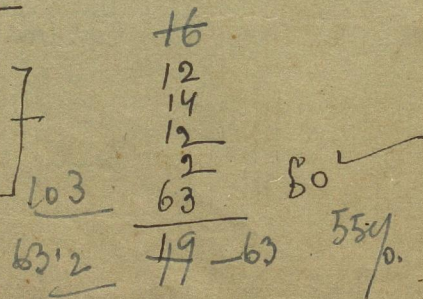 16
12
14
12
2
103 63 50
63.2 49 - 63 55%